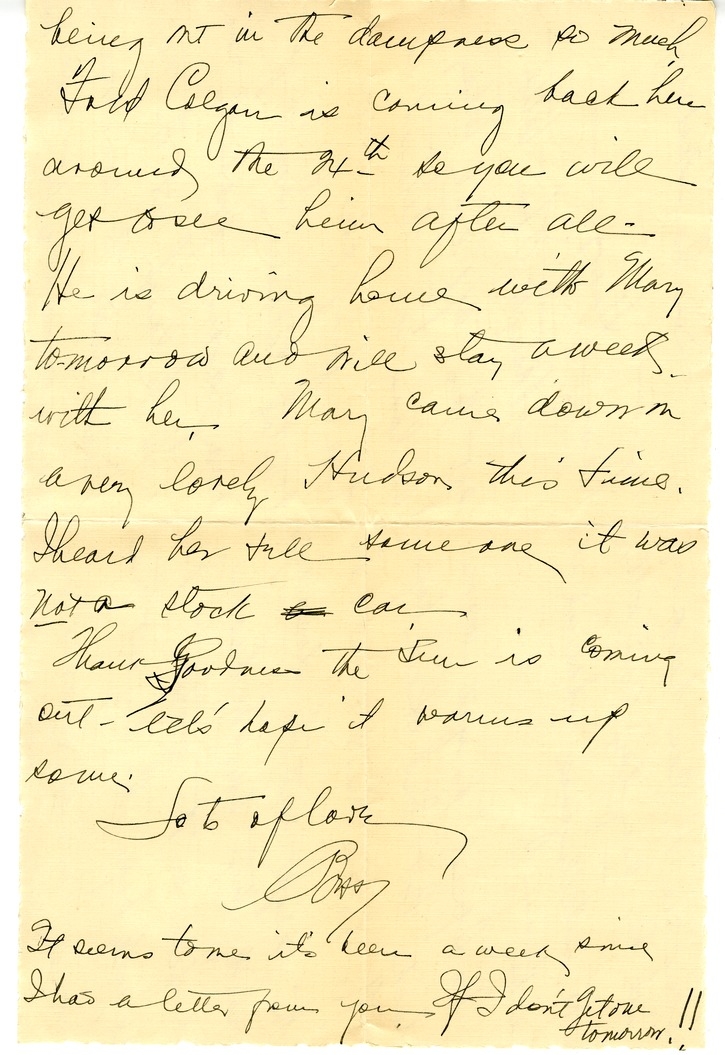 being out in the dampness so much
Told Colgan is coming back here
around the 24th so you will
get to see him after all-
He is driving home with Mary
tomorrow and will stay a week
with her. Mary came down in
a very lovely Hudson this time.
I heard her tell someone it was
not a stock a car
Thank goodness the sun is coming
out - let's hope it warms up
some.
Lots of love
It seems to me it's been a week since
I had a letter from you. If I don't get one
tomorrow.!!